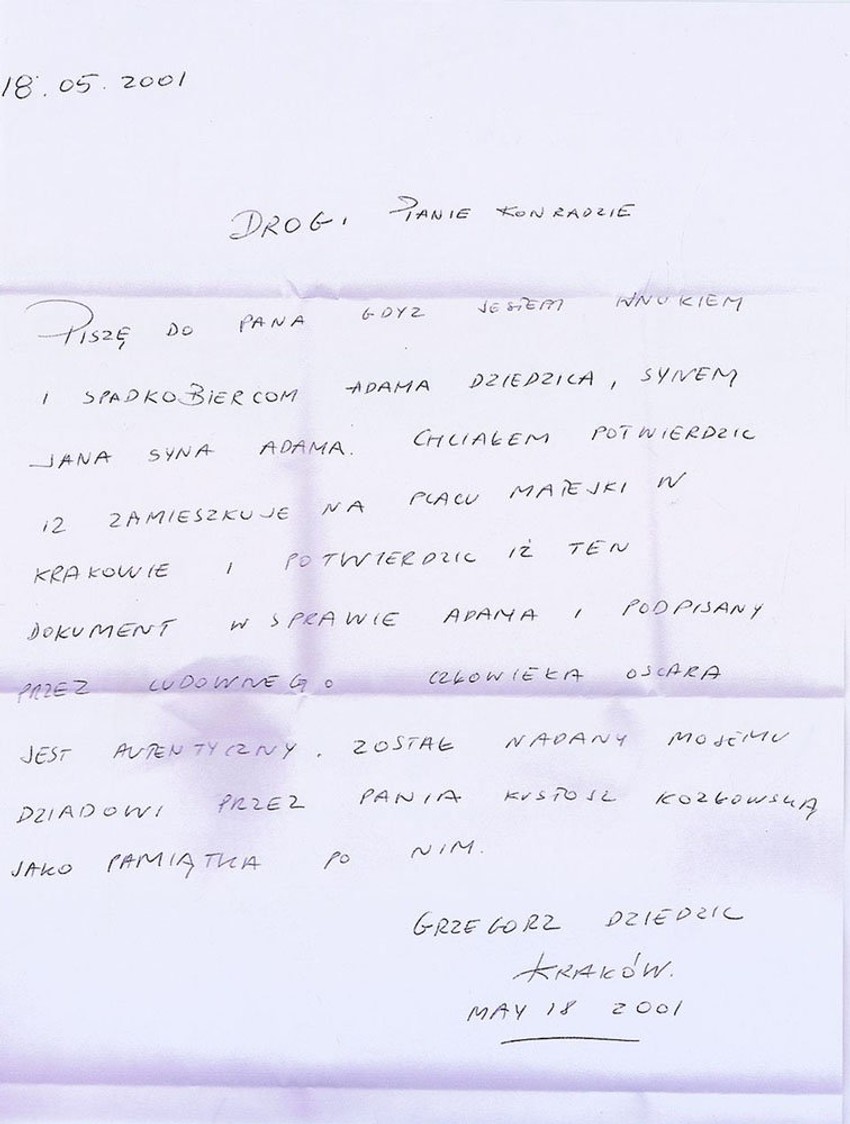 18.05.2001
DROGI PANIE KONRADZIE
PISZĘ DO PANA GDYZ JESTEM WNUKIEM
I SPADKOBIERCOM ADAMA DZIEDZICA, SYNEM
JANA SYNA ADAMA. CHCIAŁEM POTWIERDZIC
IZ ZAMIESZKUJE NA PLACU MATEJKI W
KRAKOWIE I POTWIERDZIC IŻ TEN
DOKUMENT W SPRAWIE ADAMA I PODPISANY
PRZEZ CUDOWNEGO CZŁOWIEKA OSCARA
JEST AUTENTYCZNY. ZOSTAŁ NADANY MOJEMU
DZIADOWI PRZEZ PANIA KUSTOSZ KOZŁOWSKĄ
JAKO PAMIĄTKA PO NIM.
GRZEGORZ DZIEDZIC
KRAKÓW.
MAY 18 2001